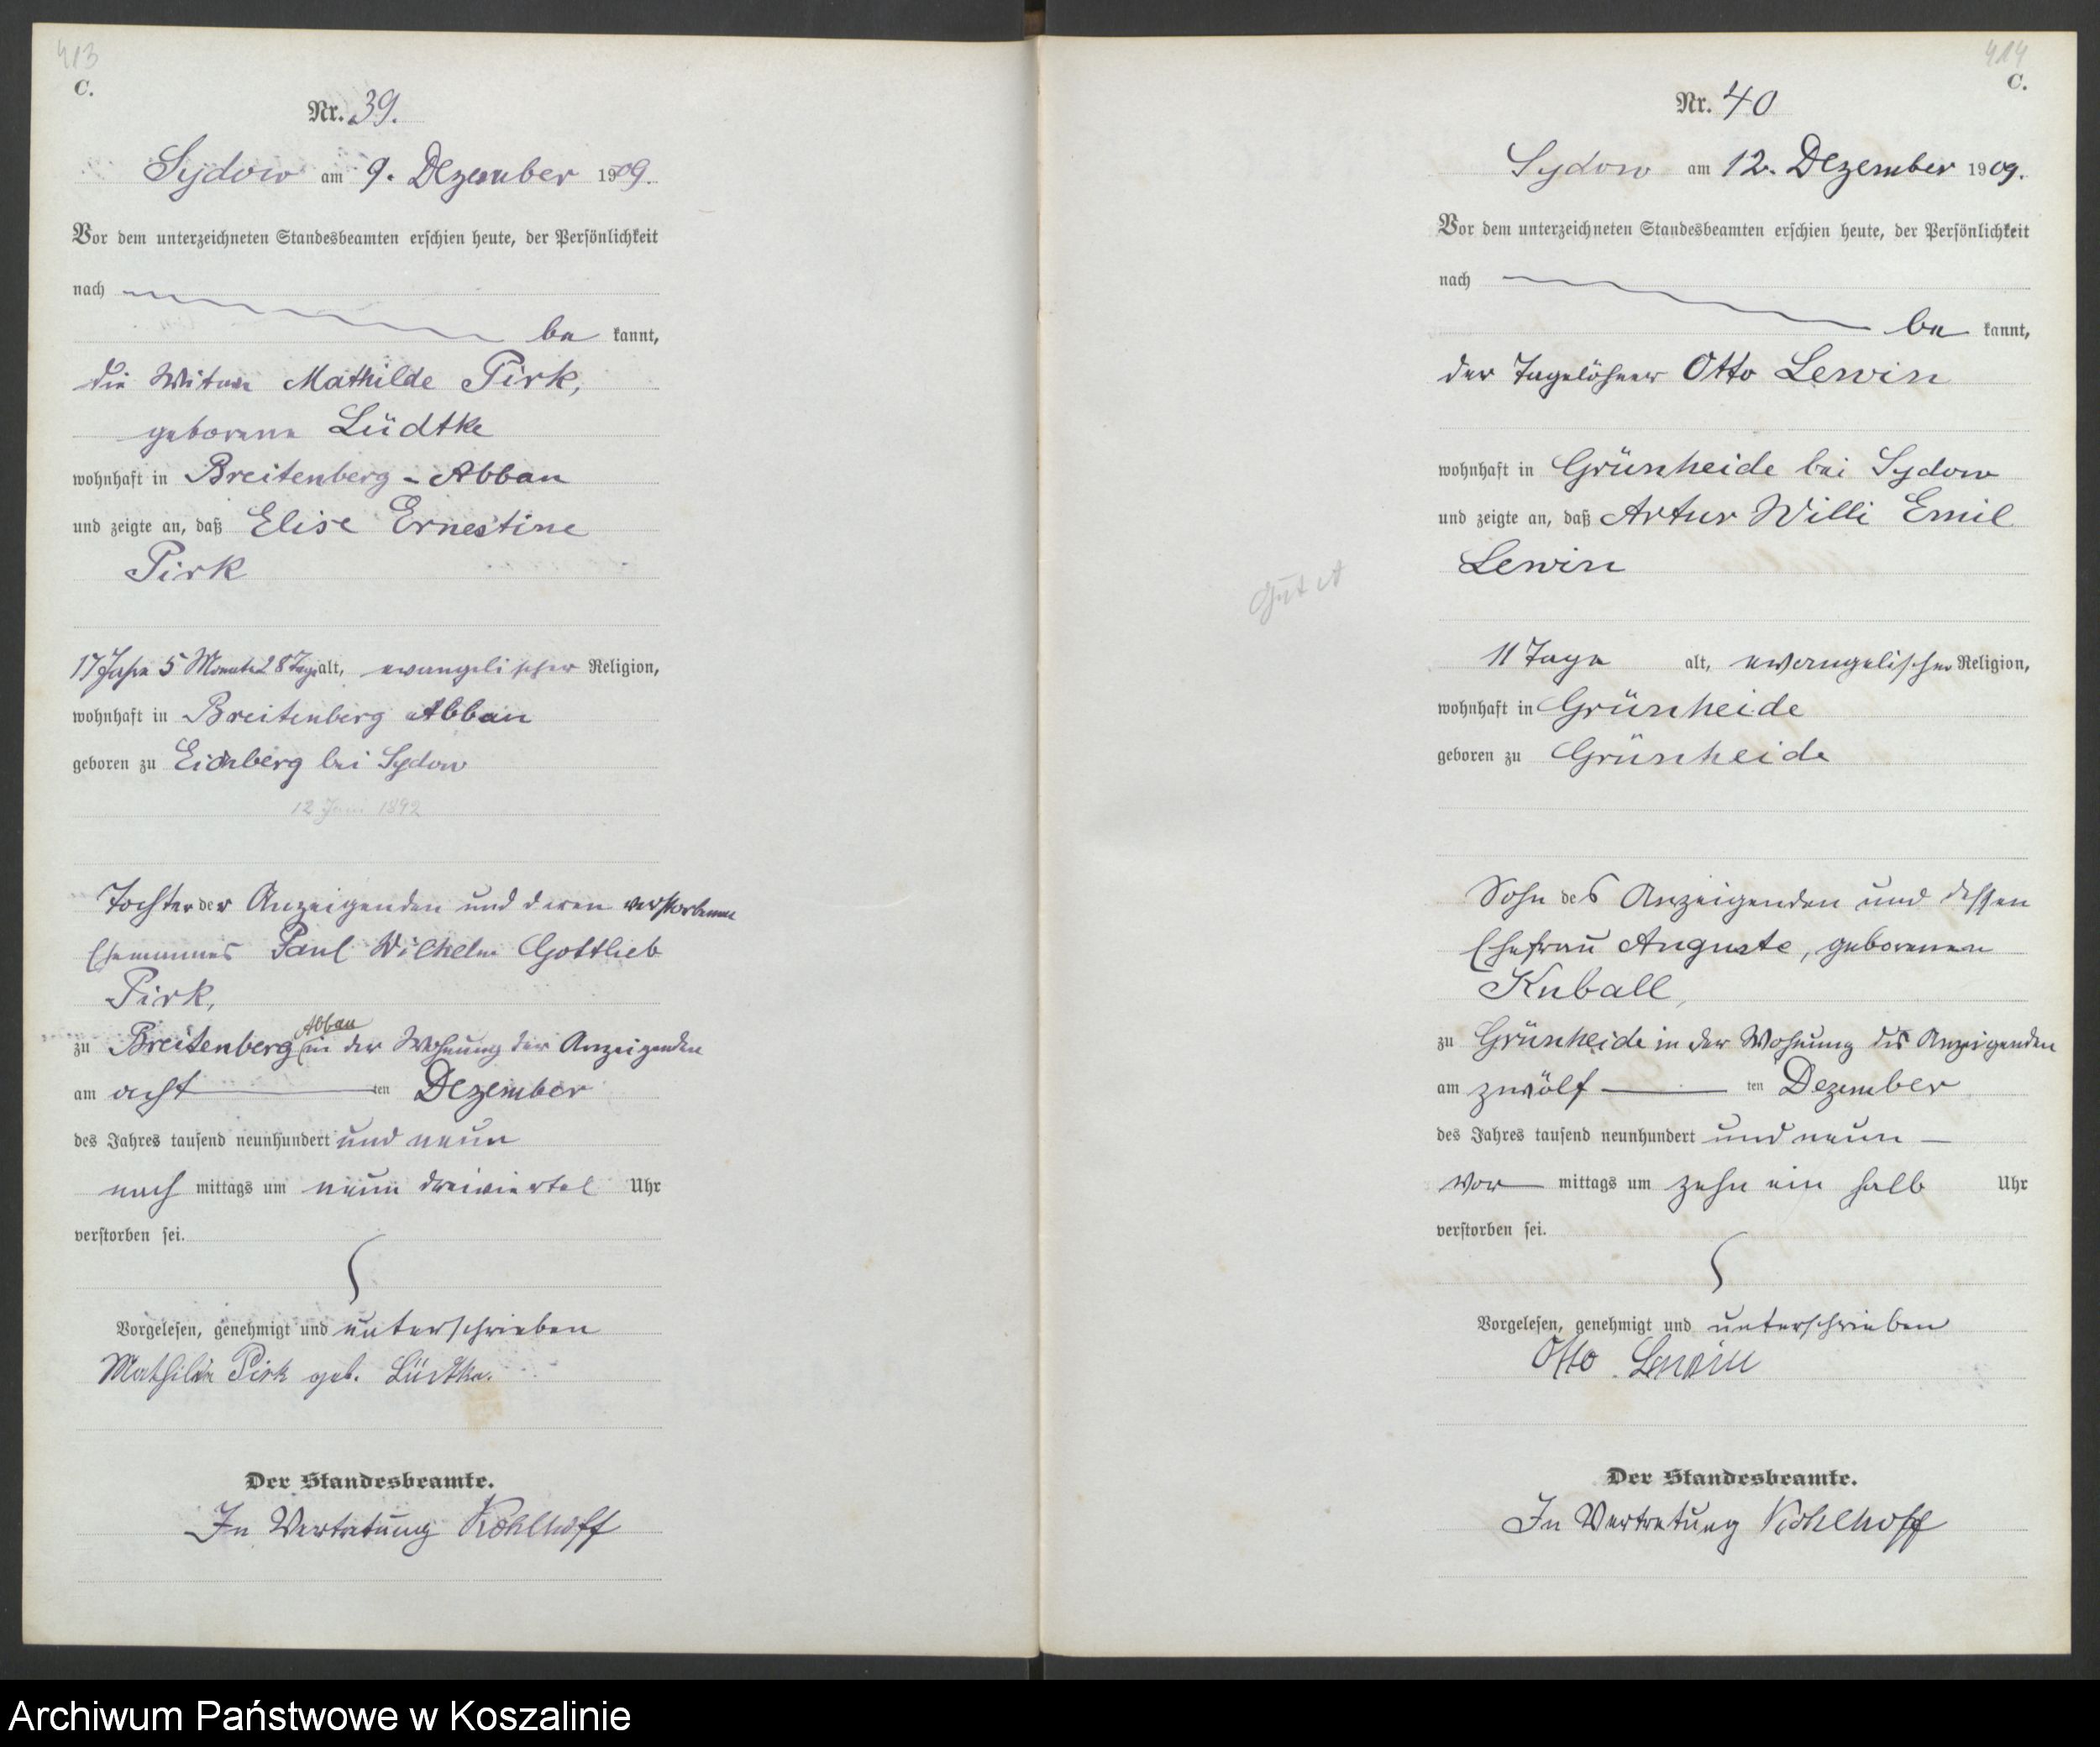 413
C.
Nr. 39.
Sydow am 9. Dezember 1909.
Vor dem unterzeichneten Standesbeamten erschien heute, der Persönlichkeit
nach
be kannt,
die Witwe Mathilde Pirk,
geborene Lüdtke
wohnhaft in Breitenberg-Abbau
und zeigte an, daß Elise Ernestine
Pirk
17 Jahre 5 Monate 28 Tage alt, evangelischer Religion,
wohnhaft in Breitenberg Abbau
geboren zu Eichberg bei Sydow
12 Juni 1892
Tochter der Anzeigenden und deren verstorbenen
Ehemannes Paul Wilhelm Gottlieb
Pirk,
Abbau
zu Breitenberg in der Wohnung der Anzeigenden
am acht ten Dezember
des Jahres tausend neunhundert und neun
nach mittags um neun dreiviertel Uhr
verstorben sei.
Vorgelesen, genehmigt und unterschrieben
Mathilde Pirk geb. Lüdtke.
Der Standesbeamte.
In Vertretung Kohlhoff
414
C.
Nr. 40
Sydow am 12. Dezember 1909.
Vor dem unterzeichneten Standesbeamten erschien heute, der Persönlichkeit
nach
be kannt,
der Tagelöhner Otto Lewin
wohnhaft in Grünheide bei Sydow
und zeigte an, daß Artur Willi Emil
Lewin
11 Tage alt, evangelischer Religion,
wohnhaft in Grünheide
geboren zu Grünheide
Sohn des Anzeigenden und dessen
Ehefrau Auguste, geborenen
Kuball,
zu Grünheide in der Wohnung des Anzeigenden
am zwölf ten Dezember
des Jahres tausend neunhundert und neun
vor mittags um zehn ein halb Uhr
verstorben sei.
Vorgelesen, genehmigt und unterschrieben
Otto Lewin
Der Standesbeamte.
In Vertretung Kohlhoff
Archiwum Państwowe w Koszalinie